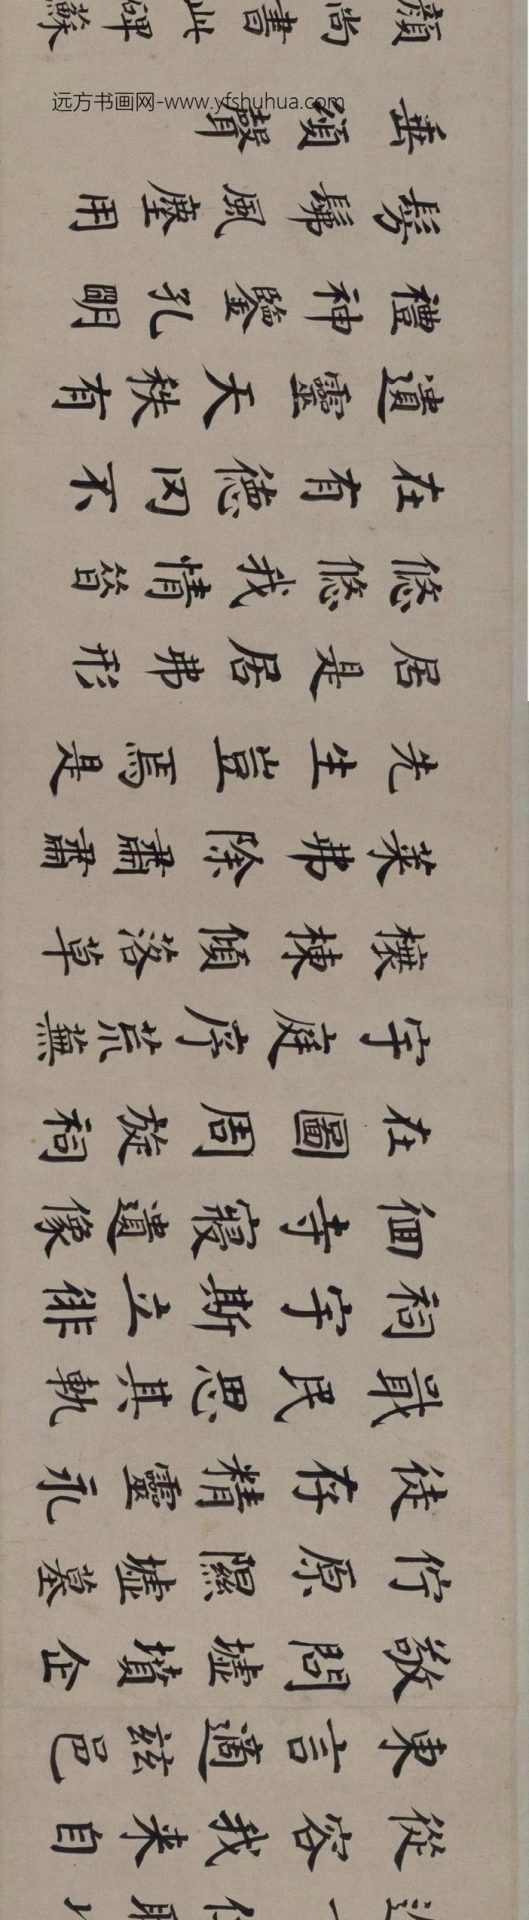 從容我来自
東言適茲邑
敬問墟墳企
佇原隰墟墓
徒存精靈永
戢民思其軌
祠宇斯立徘
徊寺寢遺像
在圖周旋祠
宇庭序荒蕪
榱棟傾落草
萊弗除肅肅
先生豈焉是
居是居弗形
悠悠我情昔
在有德罔不
遺靈天秩有
禮神鑒孔明
髣髴風塵用
垂頌聲
顏尚書此碑蘇
远方书画网-www.yfshuhua.com